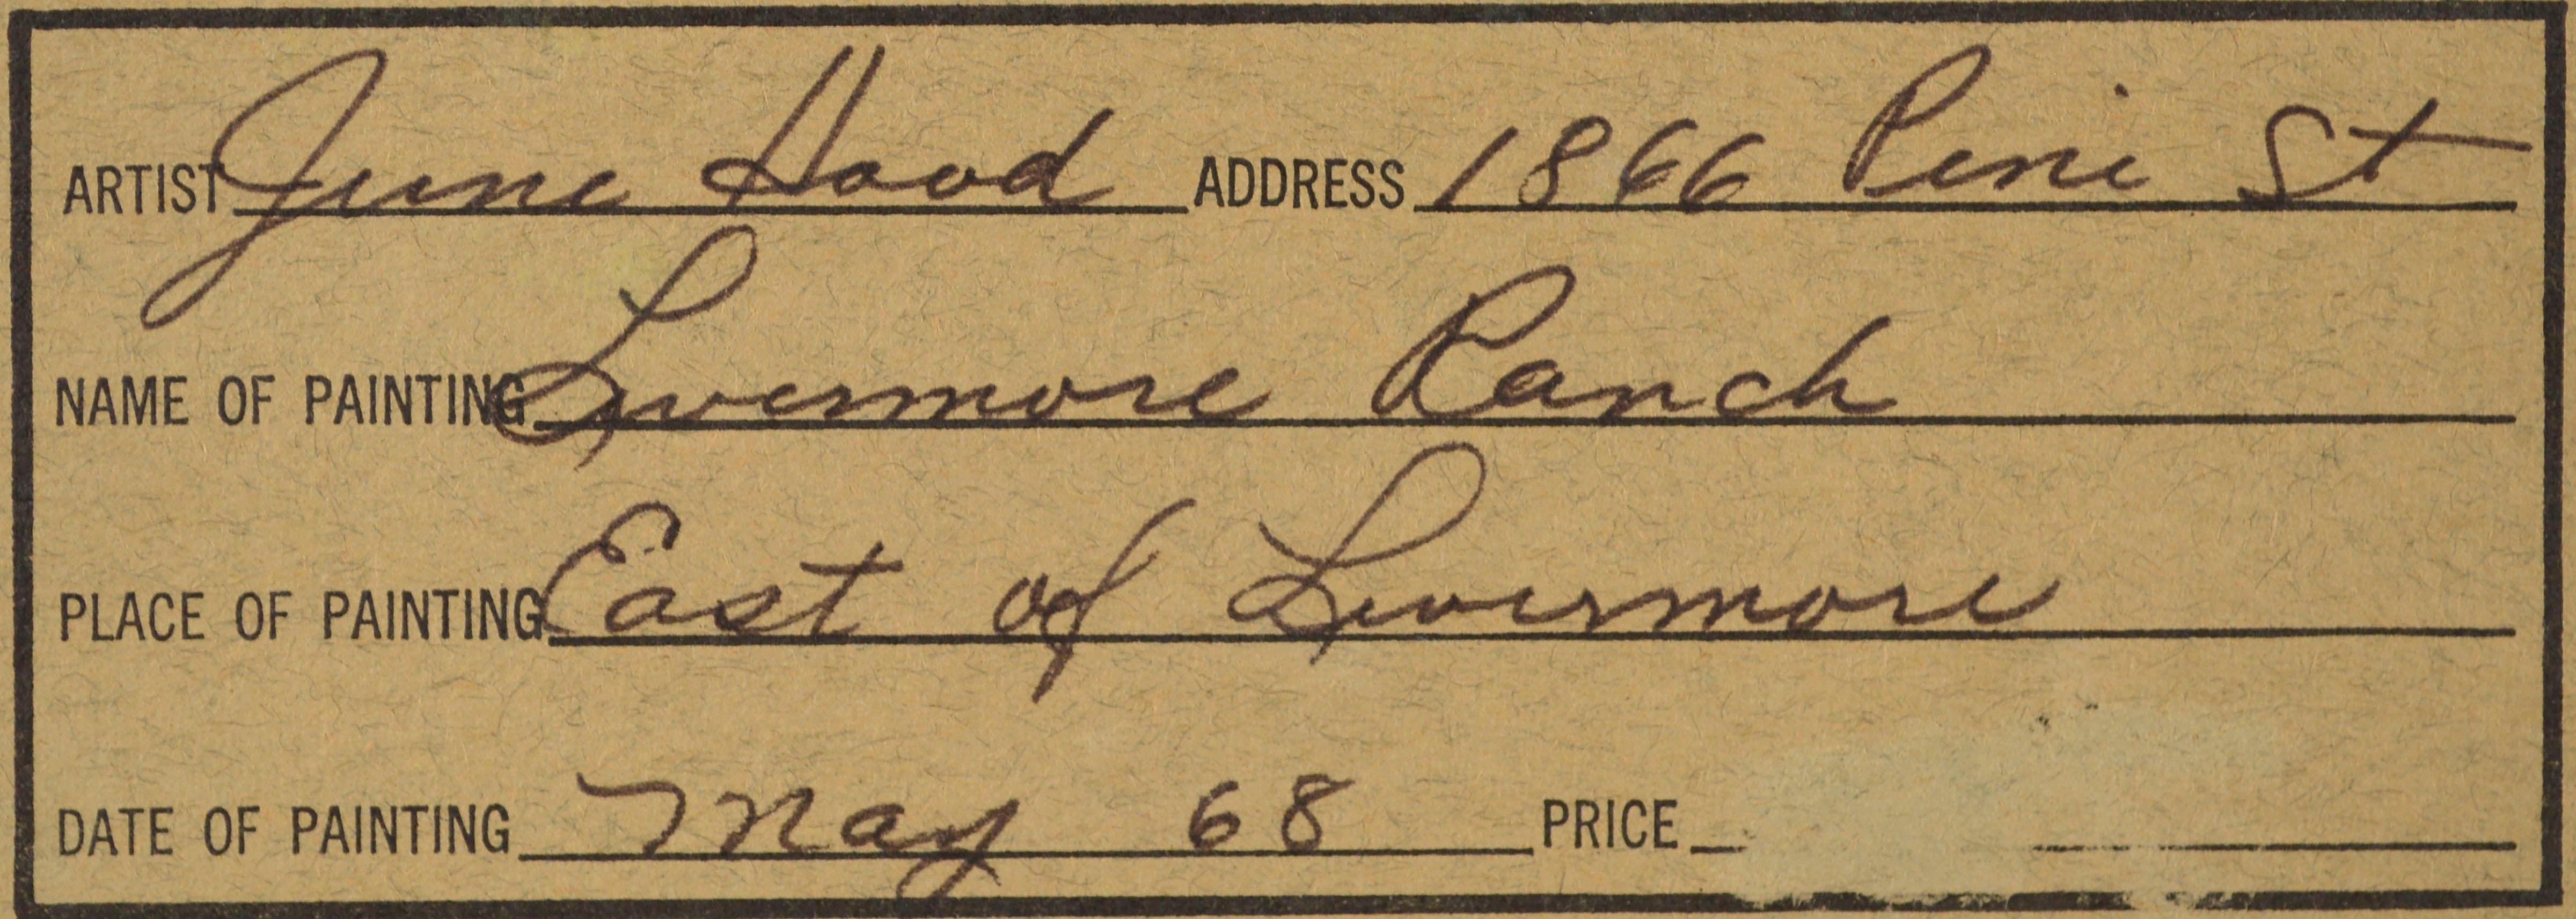 ARTIST June Hood ADDRESS 1866 Pine St
NAME OF PAINTING Livermore Ranch
PLACE OF PAINTING East of Livermore
DATE OF PAINTING May 68 PRICE